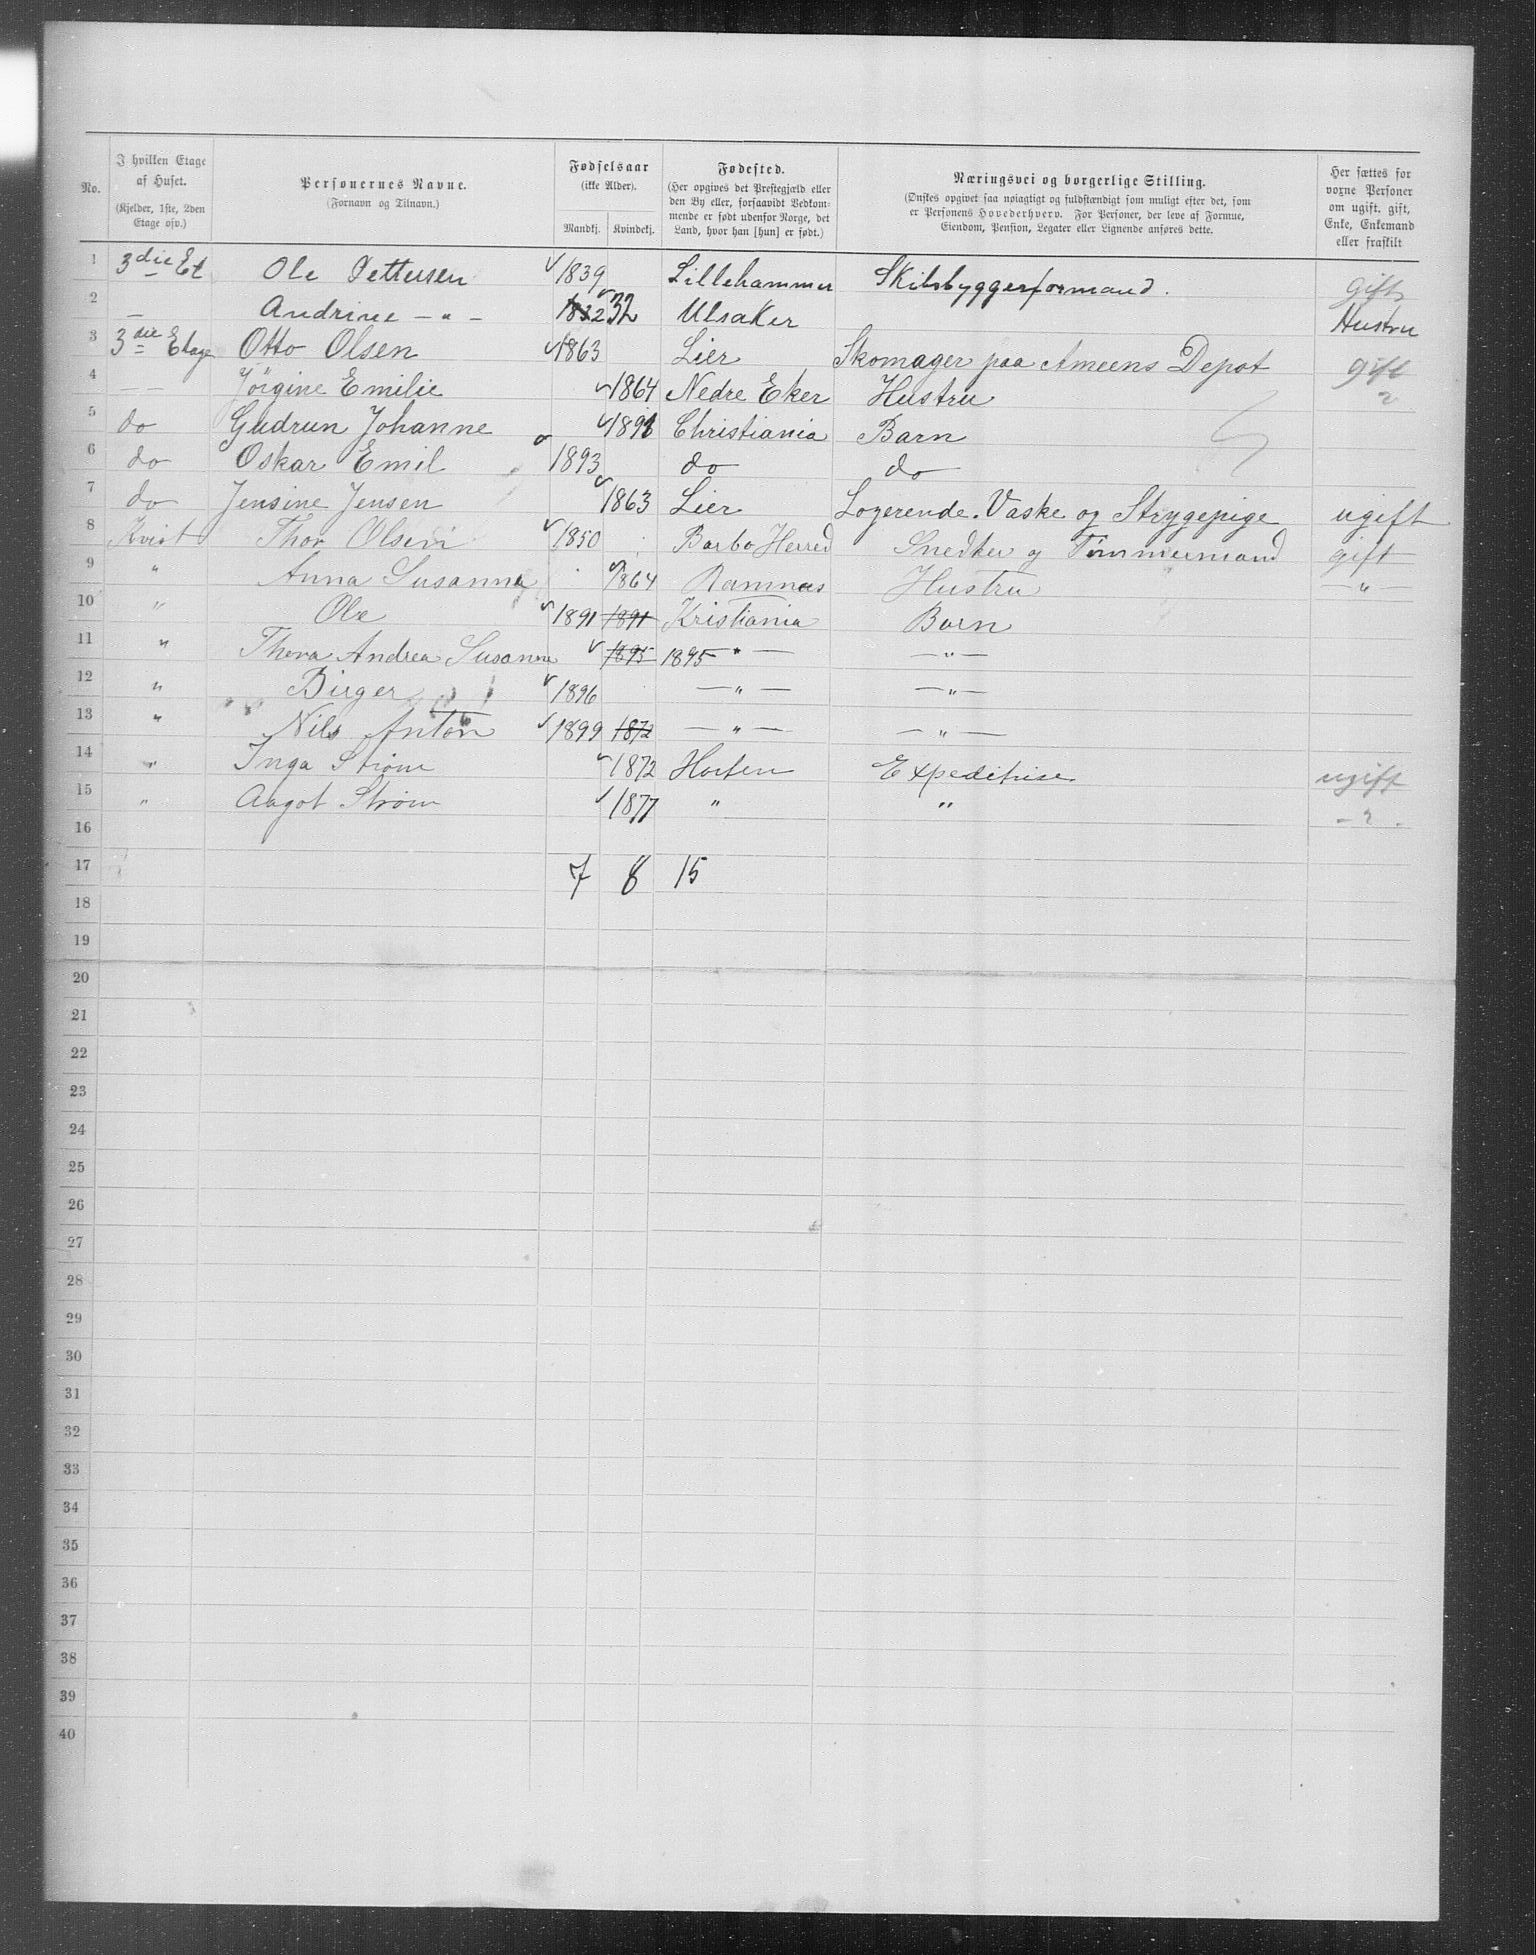 No.
I hvilken Etage af Huset.
(Kjelder, 1ste, 2den Etage osv.)
Personernes Navne.
(Fornavn og Tilnavn.)
Fødselsaar
(ikke Alder).
Mandkj. Kvindekj.
Fødested.
(Her opgives det Præstegjæld eller den By eller, forsaavidt Vedkommende er født udenfor Norge, det Land, hvor han [hun] er født.)
Næringsvei og borgerlige Stilling.
(Ønskes opgivet saa nøiagtigt og fuldstændigt som muligt efter det, som er Personens Hovederhverv. For Personer, der leve af Formue, Eiendom, Pension, Legater eller Lignende anføres dette.
Her sættes for voxne Personer om ugift, gift, Enke, Enkemand eller fraskilt
1 3die Et Ole Pettersen 1839 Lillehammer Skibsbyggerformand. gift
2 — Andrine — „ — 1832 32 Ulsaker Hustru
3 3die Etage Otto Olsen 1863 Lier Skomager paa Ameens Depot gift
4 — — Jörgine Emilie 1864 Nedre Eker Hustru
5 do Gudrun Johanne 1891 Christiania Barn
6 do Oskar Emil 1893 do do
7 do Jensine Jensen 1863 Lier Logerende. Vaske og Strygepige ugift
8 Kvist Thor Olsen 1850 Barbo Herred Snedker og Tömmermand gift
9 „ Anna Susanna 1864 Ramnæs Hustru — „ —
10 „ Ole 1891 1891 Kristiania Barn
11 „ Thora Andrea Susanne 1895 1895 „ — — „ —
12 „ Birger 1896 — „ — — „ —
13 „ Nils Anton 1899 1872 — „ — — „ —
14 „ Inga Strøm 1872 Horten Expeditrise ugift
15 „ Aagot Strøm 1877 „ „ — „ —
16
17 7 8 15
18
19
20
21
22
23
24
25
26
27
28
29
30
31
32
33
34
35
36
37
38
39
40